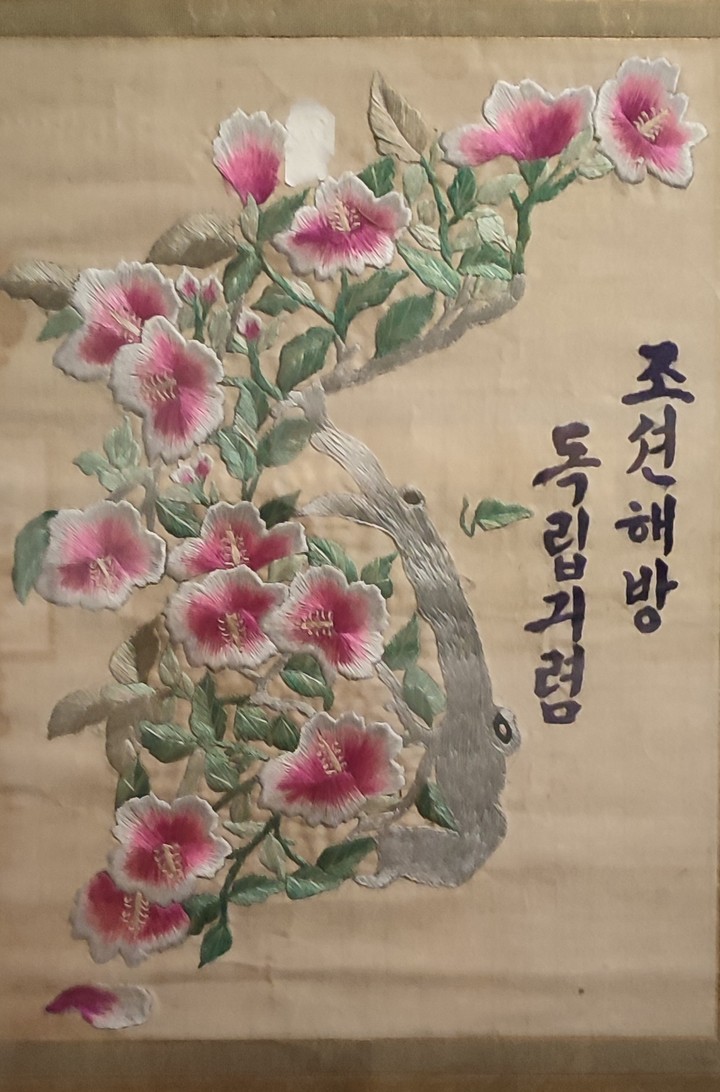 조선해방
독립귀렴